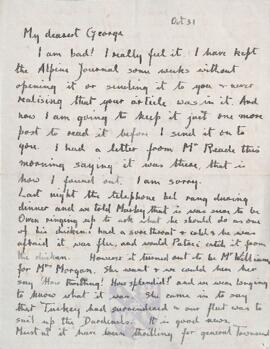 Oct 31
My dearest George
I am bad! I really feel it. I have kept
the Alpine Journal some weeks without
opening it or sending it to you & never
realising that your article was in it. And
now I am going to keep it just one more
post to read it before I send it on to
you. I had a letter from Mr Reade this
morning saying it was there, that is
how I found out. I am sorry.
Last night the telephone bel rang during
dinner and we told Marby that is was sure to be
Owen ringing up to ask what he should do as one
of his chicken! had a sore throat & colds he was
afraid it was flu, and would Patsei catch it from
the chicken. However it turned out to be Mr Williams
for Mrs Morgan. She went & we could hear her
say How thrilling! How splendid! and we were longing
to know what it was. She came in to say
that Turkey had surrendered & our fleet was to
sail up the Dardanels. It is good news.
Must at it have been thrilling for general Townsend